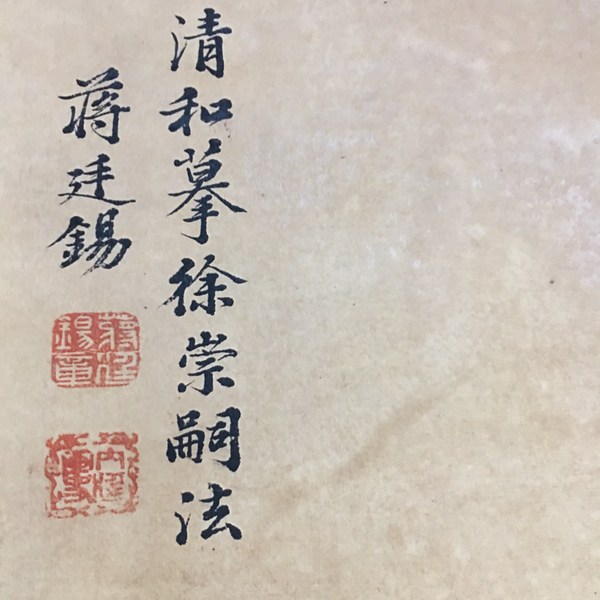 清和摹徐崇嗣法
蔣廷錫